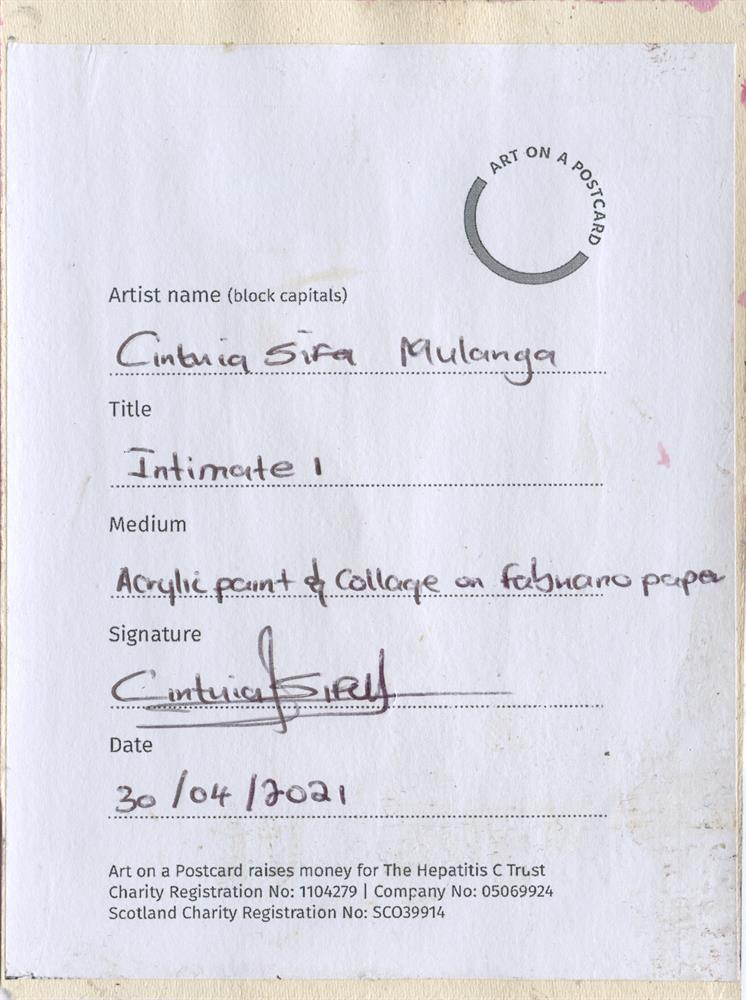 ART ON A POSTCARD
Artist name (block capitals)
Cinthia Sifa Mulanga
Title
Intimate 1
Medium
Acrylic paint & Collage on Fabriano paper
Signature
Cinthia Sifa
Date
30/04/2021
Art on a Postcard raises money for The Hepatitis C Trust
Charity Registration No: 1104279 | Company No: 05069924
Scotland Charity Registration No: SCO39914